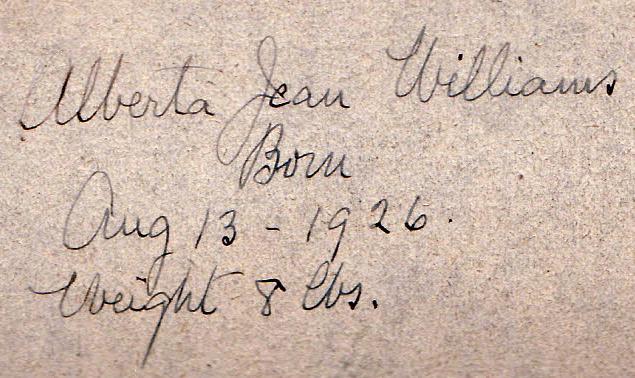 Alberta Jean Williams
Born
Aug 13 - 1926.
Weight 8 lbs.